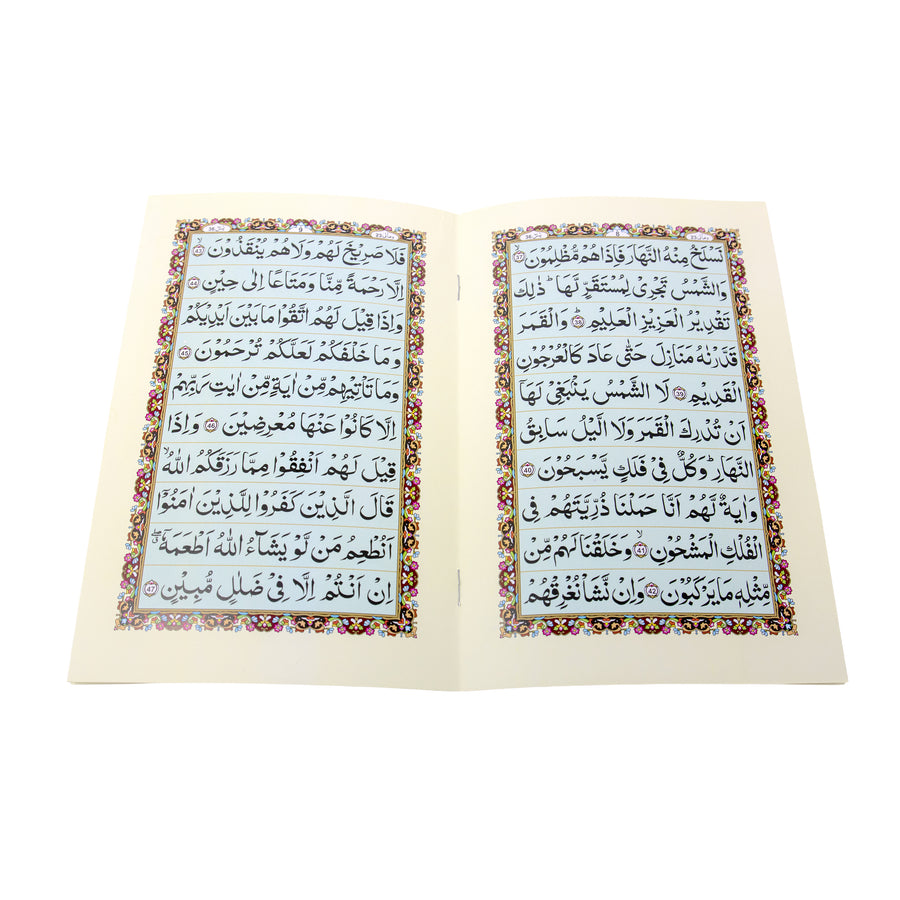 وَمَالِیَ 23
8
یٰسٓ 36
نَسۡلَخُ مِنۡهُ النَّهَارَ فَاِذَا هُمۡ مُّظۡلِمُوۡنَ 37
وَالشَّمۡسُ تَجۡرِىۡ لِمُسۡتَقَرٍّ لَّهَا ؕ ذٰلِكَ
تَقۡدِيۡرُ الۡعَزِيۡزِ الۡعَلِيۡمِؕ 38 وَالۡقَمَرَ
قَدَّرۡنٰهُ مَنَازِلَ حَتّٰى عَادَ كَالۡعُرۡجُوۡنِ
الۡقَدِيۡمِ 39 لَا الشَّمۡسُ يَنۡۢبَغِىۡ لَهَاۤ
اَنۡ تُدۡرِكَ الۡقَمَرَ وَلَا الَّيۡلُ سَابِقُ
النَّهَارِؕ وَكُلٌّ فِىۡ فَلَكٍ يَّسۡبَحُوۡنَ 40
وَاٰيَةٌ لَّهُمۡ اَنَّا حَمَلۡنَا ذُرِّيَّتَهُمۡ فِى
الۡفُلۡكِ الۡمَشۡحُوۡنِۙ 41 وَخَلَقۡنَا لَهُمۡ مِّنۡ
مِّثۡلِهٖ مَا يَرۡكَبُوۡنَ 42 وَاِنۡ نَّشَاۡ نُغۡرِقۡهُمۡ
وَمَالِیَ 23
9
یٰسٓ 36
فَلَا صَرِيۡخَ لَهُمۡ وَلَا هُمۡ يُنۡقَذُوۡنَۙ 43
اِلَّا رَحۡمَةً مِّنَّا وَمَتَاعًا اِلٰى حِيۡنٍ 44
وَاِذَا قِيۡلَ لَهُمُ اتَّقُوۡا مَا بَيۡنَ اَيۡدِيۡكُمۡ
وَمَا خَلۡفَكُمۡ لَعَلَّكُمۡ تُرۡحَمُوۡنَ 45
وَمَا تَاۡتِيۡهِمۡ مِّنۡ اٰيَةٍ مِّنۡ اٰيٰتِ رَبِّهِمۡ
اِلَّا كَانُوۡا عَنۡهَا مُعۡرِضِيۡنَ 46 وَاِذَا
قِيۡلَ لَهُمۡ اَنۡفِقُوۡا مِمَّا رَزَقَكُمُ اللّٰهُۙ
قَالَ الَّذِيۡنَ كَفَرُوۡا لِلَّذِيۡنَ اٰمَنُوۡۤا
اَنُطۡعِمُ مَنۡ لَّوۡ يَشَآءُ اللّٰهُ اَطۡعَمَهٗۤ ۖ
اِنۡ اَنۡتُمۡ اِلَّا فِىۡ ضَلٰلٍ مُّبِيۡنٍ 47